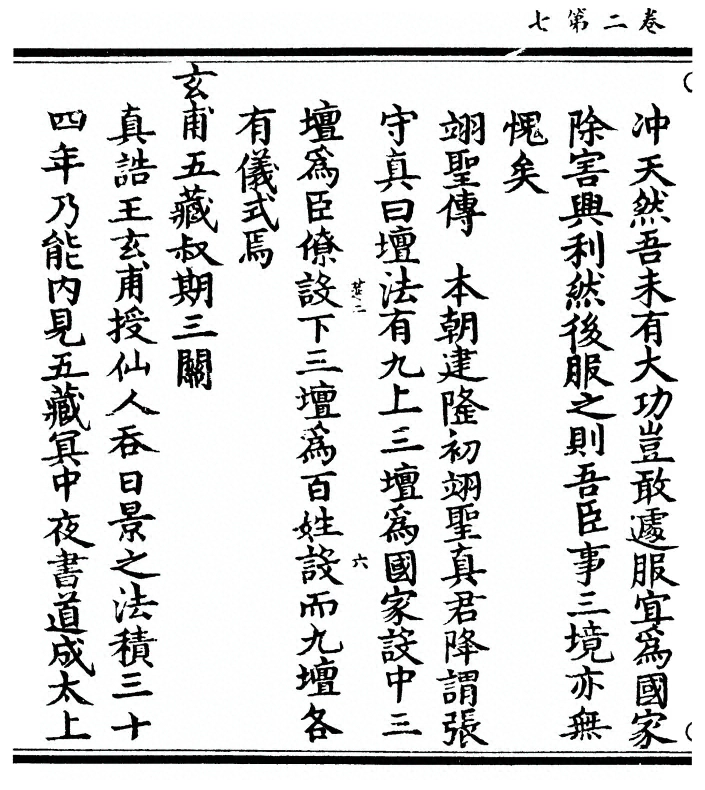 卷二第七
冲天然吾未有大功豈敢遽服宜爲國家
除害興利然後服之則吾臣事三境亦無
愧矣
翊聖傳　本朝建隆初翊聖真君降謂張
守真曰壇法有九上三壇爲國家設中三
壇爲臣僚設下三壇爲百姓設而九壇各
有儀式焉
玄甫五藏叔期三關
真誥王玄甫授仙人吞日景之法積三十
四年乃能內見五藏冥中夜書道成太上
六